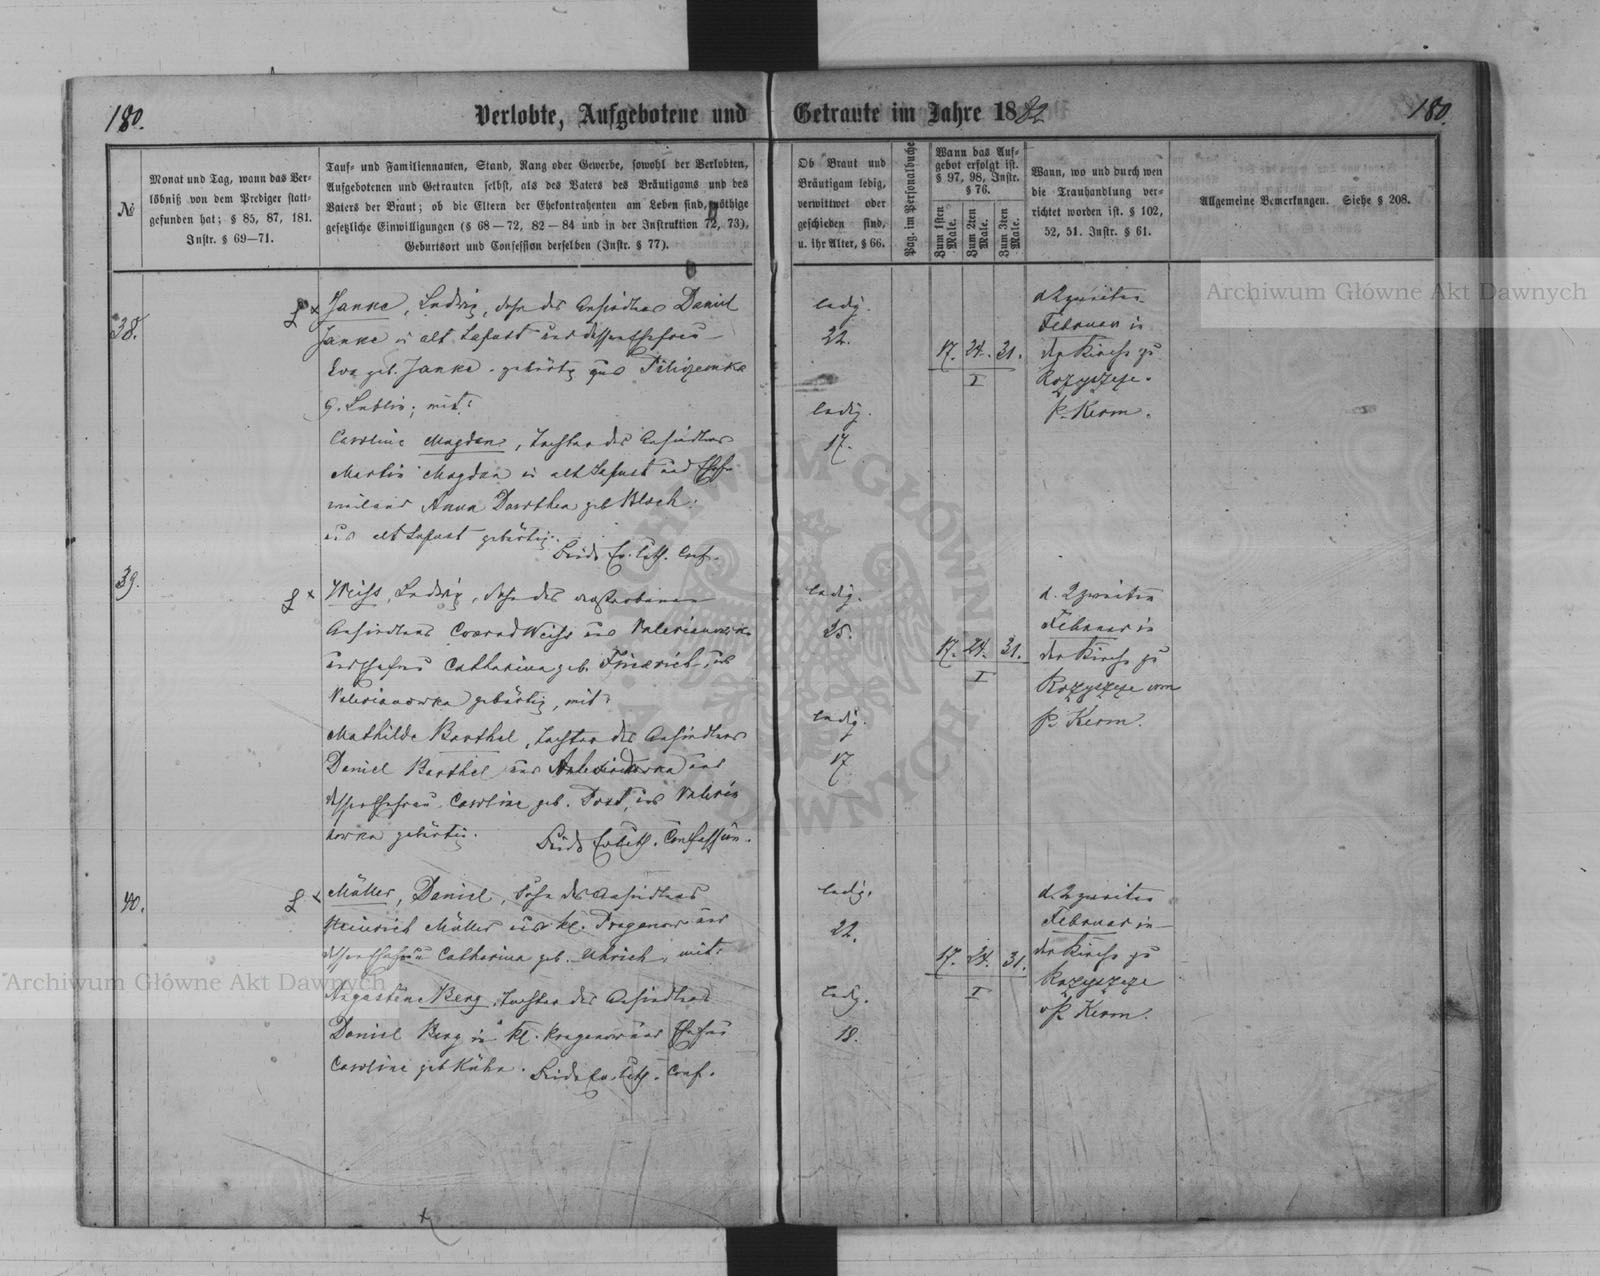 180.
Verlobte, Aufgebotene und Getraute im Jahre 1882
180.
№
Monat und Tag, wann das Ver-
löbniß von dem Prediger statt-
gefunden hat; § 85, 87, 181.
Instr. § 69—71.
Tauf- und Familiennamen, Stand, Rang oder Gewerbe, sowohl der Verlobten,
Aufgebotenen und Getrauten selbst, als des Vaters des Bräutigams und des
Vaters der Braut; ob die Eltern der Ehekontrahenten am Leben sind, nöthige
gesetzliche Einwilligungen (§ 68—72, 82—84 und in der Instruktion 72, 73),
Geburtsort und Confession derselben (Instr. § 77).
Ob Braut und
Bräutigam ledig,
verwittwet oder
geschieden sind,
u. ihr Alter, § 66.
Pag. im Personalbuche
Wann das Auf-
gebot erfolgt ist.
§ 97, 98, Instr.
§ 76.
Zum 1sten
Male.
Zum 2ten
Male.
Zum 3ten
Male.
Wann, wo und durch wen
die Trauhandlung ver-
richtet worden ist. § 102,
52, 51. Instr. § 61.
Allgemeine Bemerkungen. Siehe § 208.
38.
Janke, Ludwig, Sohn des Ansiedlers Daniel
Janke in alt Lafust und dessen Ehefrau
Eva geb. Janke. gebürtig aus
G. Lublin; mit:
Caroline Magdanz, Tochter des Ansiedlers
Martin Magdan in alt Lafust und Ehefr.
weiland Anna Dorothea geb. Bloch.
aus alt Lafust gebürtig.
Beide Ev. Luth. Conf.
ledig.
22.
ledig.
17.
17. 24. 31.
I
d. 2 zweiten
Februar in
der Kirche zu
Rozyszcze.
p. Kerm.
39.
Weiss, Ludwig, Sohn des verstorbenen
Ansiedlers Conrad Weiss aus Valerianowka
und Ehefrau Catharina geb. Friedrich, aus
Valerianowka gebürtig, mit:
Mathilde Barthel, Tochter des Ansiedlers
Daniel Barthel aus und
dessen Ehefrau Caroline geb. aus Valeria
nowka gebürtig.
Beide Ev Luth. Confession.
ledig.
25.
ledig.
17
17. 24. 31.
I
d. 2 zweiten
Februar in
der Kirche zu
Rozyszcze vom
P. Kerm.
40.
Müller, Daniel, Sohn des Ansiedlers
Heinrich Müller aus kl. und
dessen Ehefrau Catharina geb. Uhrich, mit:
Augustine Berg, Tochter des Ansiedlers
Daniel Berg in kl. und Ehefrau
Caroline geb Kühn. Beide Ev. Luth. Conf.
ledig.
22.
ledig.
18.
17. 24. 31.
I
d. 2 zweiten
Februar in
der Kirche zu
Rozyszcze
P. Kerm.
Archiwum Główne Akt Dawnych
Archiwum Główne Akt Dawnych
ARCHIWUM GŁÓWNE AKT DAWNYCH